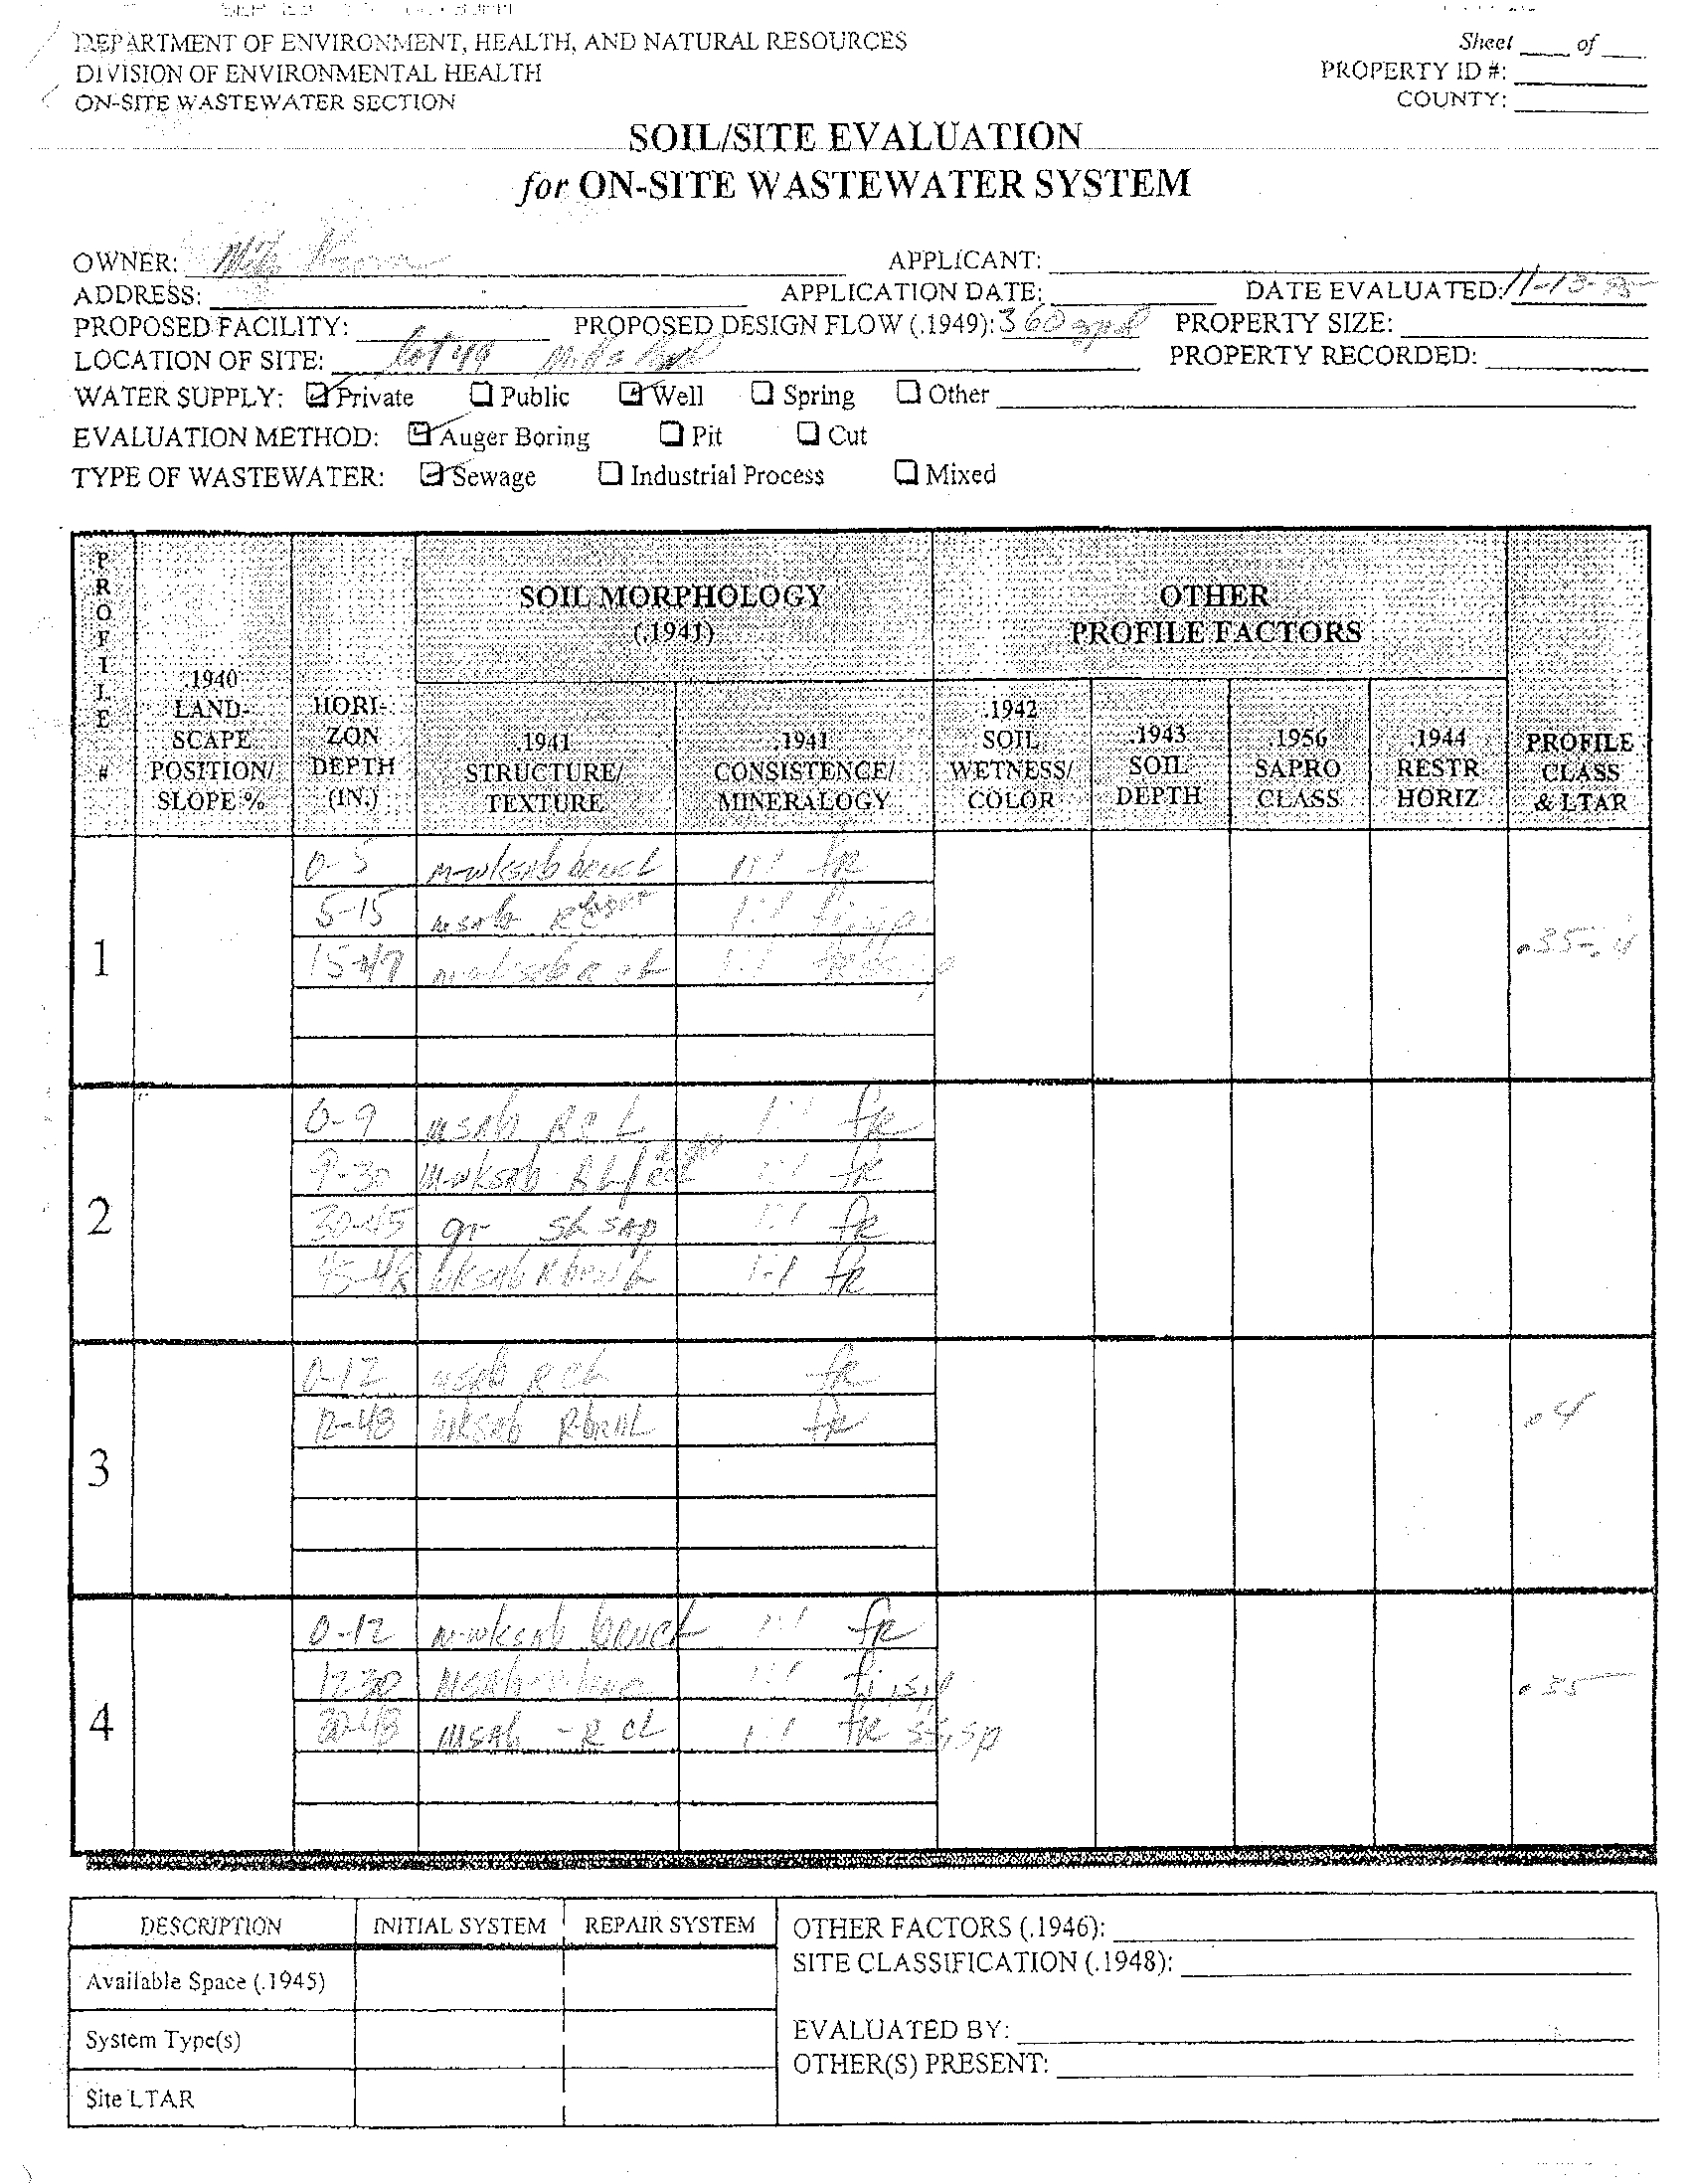 DEPARTMENT OF ENVIRONMENT, HEALTH, AND NATURAL RESOURCES
Sheet ____ of ____
DIVISION OF ENVIRONMENTAL HEALTH
PROPERTY ID #:
ON-SITE WASTEWATER SECTION
COUNTY:
SOIL/SITE EVALUATION
for ON-SITE WASTEWATER SYSTEM
OWNER:
APPLICANT:
ADDRESS:
APPLICATION DATE:
DATE EVALUATED: 11-13-95
PROPOSED FACILITY:
PROPOSED DESIGN FLOW (.1949): 360 gpd
PROPERTY SIZE:
LOCATION OF SITE: Lot 49
PROPERTY RECORDED:
WATER SUPPLY: Private Public Well Spring Other
EVALUATION METHOD: Auger Boring Pit Cut
TYPE OF WASTEWATER: Sewage Industrial Process Mixed
PROFILE #
.1940 LAND-SCAPE POSITION/ SLOPE %
HORI-ZON DEPTH (IN.)
SOIL MORPHOLOGY
(.1941)
OTHER
PROFILE FACTORS
.1941 STRUCTURE/ TEXTURE
.1941 CONSISTENCE/ MINERALOGY
.1942 SOIL WETNESS/ COLOR
.1943 SOIL DEPTH
.1956 SAPRO CLASS
.1944 RESTR HORIZ
PROFILE CLASS & LTAR
1
0-5 1:1 fr
5-15 msab 1:1
15-47 1:1
.35-.4
2
0-9 msab R C L 1:1 fr
9-30 m-wksab 1:1 fr
30-45 gr SL sap 1:1 fr
45-48 wksab 1:1 fr
3
0-12 msab R CL fr
12-48 wksab R brnL fr
.4
4
0-12 m-wksab brnCL 1:1 fr
12-30 msab 1:1 fi
30-48 msab - R CL 1:1 fr ss, sp
.35
DESCRIPTION INITIAL SYSTEM REPAIR SYSTEM
Available Space (.1945)
System Type(s)
Site LTAR
OTHER FACTORS (.1946):
SITE CLASSIFICATION (.1948):
EVALUATED BY:
OTHER(S) PRESENT: